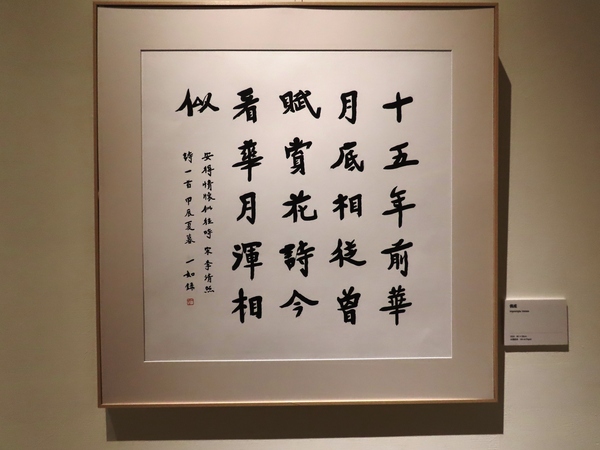 十五年前華
月底相從曾
賦賞花詩今
看華月渾相
似
安得情懷似往時 宋 李清照
詩一首 甲辰夏暮 一如錄